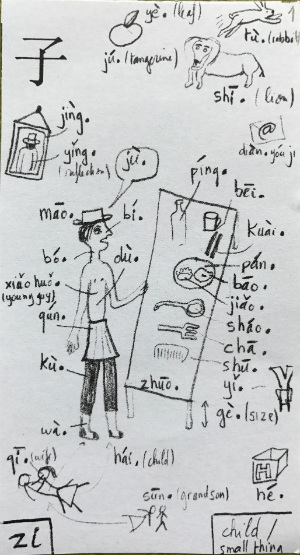 yè. (leaf)
子
jú. (tangerine)
tù. (rabbit)
1
shī. (lion)
jìng.
@
yǐng.
(reflection)
diàn yóu jì
jù.
píng.
bēi.
māo.
bí.
kuài.
bó.
dù.
pán.
bāo.
xiǎo huǒ.
(young guy)
jiǎo.
qún.
sháo.
chā.
shū.
kù.
yǐ.
zhuō.
gè. (size)
wà.
qī. (wife)
hái. (child)
H
sūn. (grandson)
hé.
zi
child /
small thing